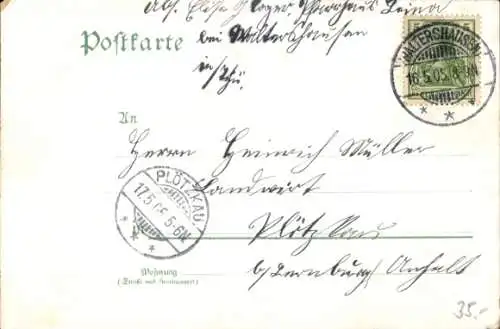 Abs. Elise Pfarrhaus Leina
Postkarte
bei Waltershausen
in Thü.
WALTERSHAUSEN
16.5.05. 8-9N
An
Herrn Heinrich Müller
Landwirt
PLÖTZKAU
17.5.05. 5-6N
Plötzkau
b/Bernburg Anhalt
Wohnung
(Straße und Hausnummer)
35.-